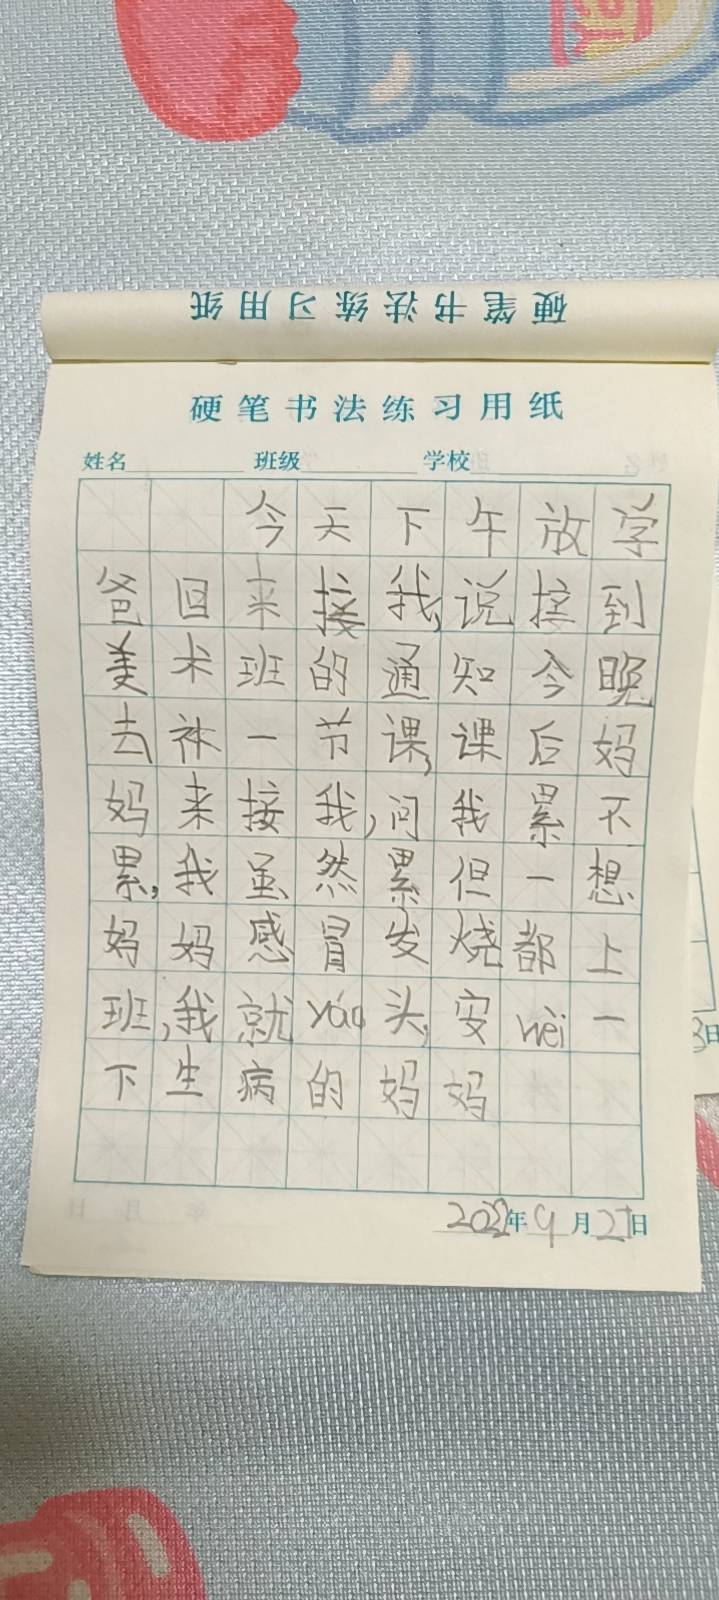 硬笔书法练习用纸
硬笔书法练习用纸
姓名 班级 学校
今天下午放学
爸回来接我,说接到
美术班的通知今晚
去补一节课,课后妈
妈来接我,问我累不
累,我虽然累但一想
妈妈感冒发烧都上
班,我就yáo头,安wèi一
下生病的妈妈
年 9月27日